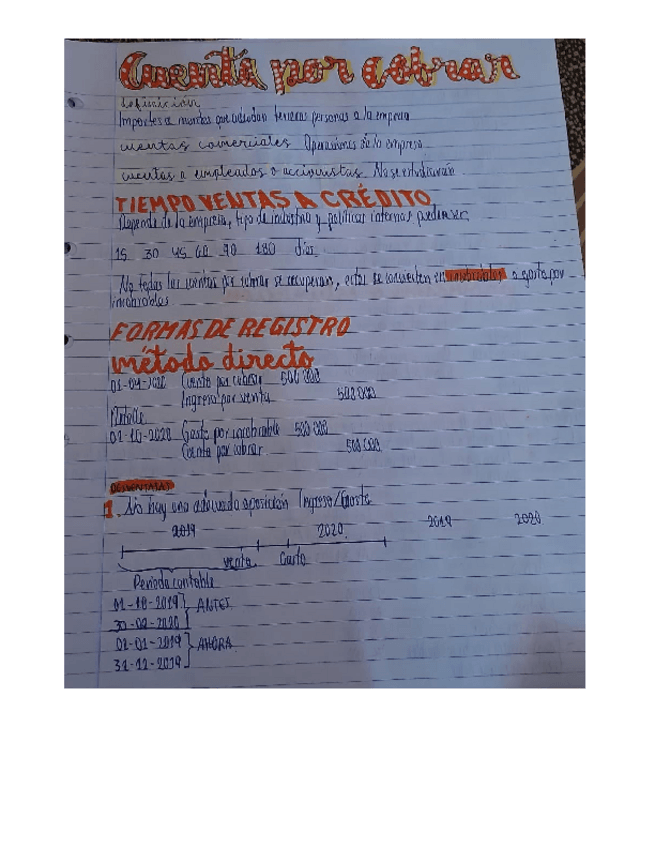 Cuenta por cobrar
Definición
Importes o montos que adeudan terceras personas a la empresa
cuentas comerciales Operaciones de la empresa
cuentas a empleados o accionistas No se estudiarán
TIEMPO VENTAS A CRÉDITO
Depende de la empresa, tipo de industria y políticas internas pueden ser,
15 30 45 60 90 180 días
No todas las cuentas por cobrar se recuperan, estas se convierten en incobrables o gasto por
incobrables
FORMAS DE REGISTRO
método directo
01-04-2020 Cuenta por cobrar 500 000
Ingreso por venta 500 000
Detalle
01-10-2020 Gasto por incobrable 500 000
Cuenta por cobrar 500 000
DESVENTAJAS
1. No hay una adecuada oposición Ingreso/Gasto
2019 2020 2019 2020
venta Gasto
Periodo contable
01-10-2019 } ANTES
30-09-2020
01-01-2019 } AHORA
31-12-2019